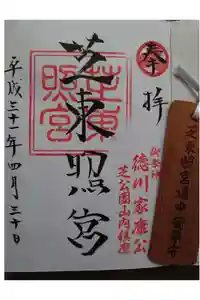 奉拝
御祭神
徳川家康公
芝公園山内鎮座
芝東照宮
芝東照宮
平成三十一年四月三十日
芝東照宮